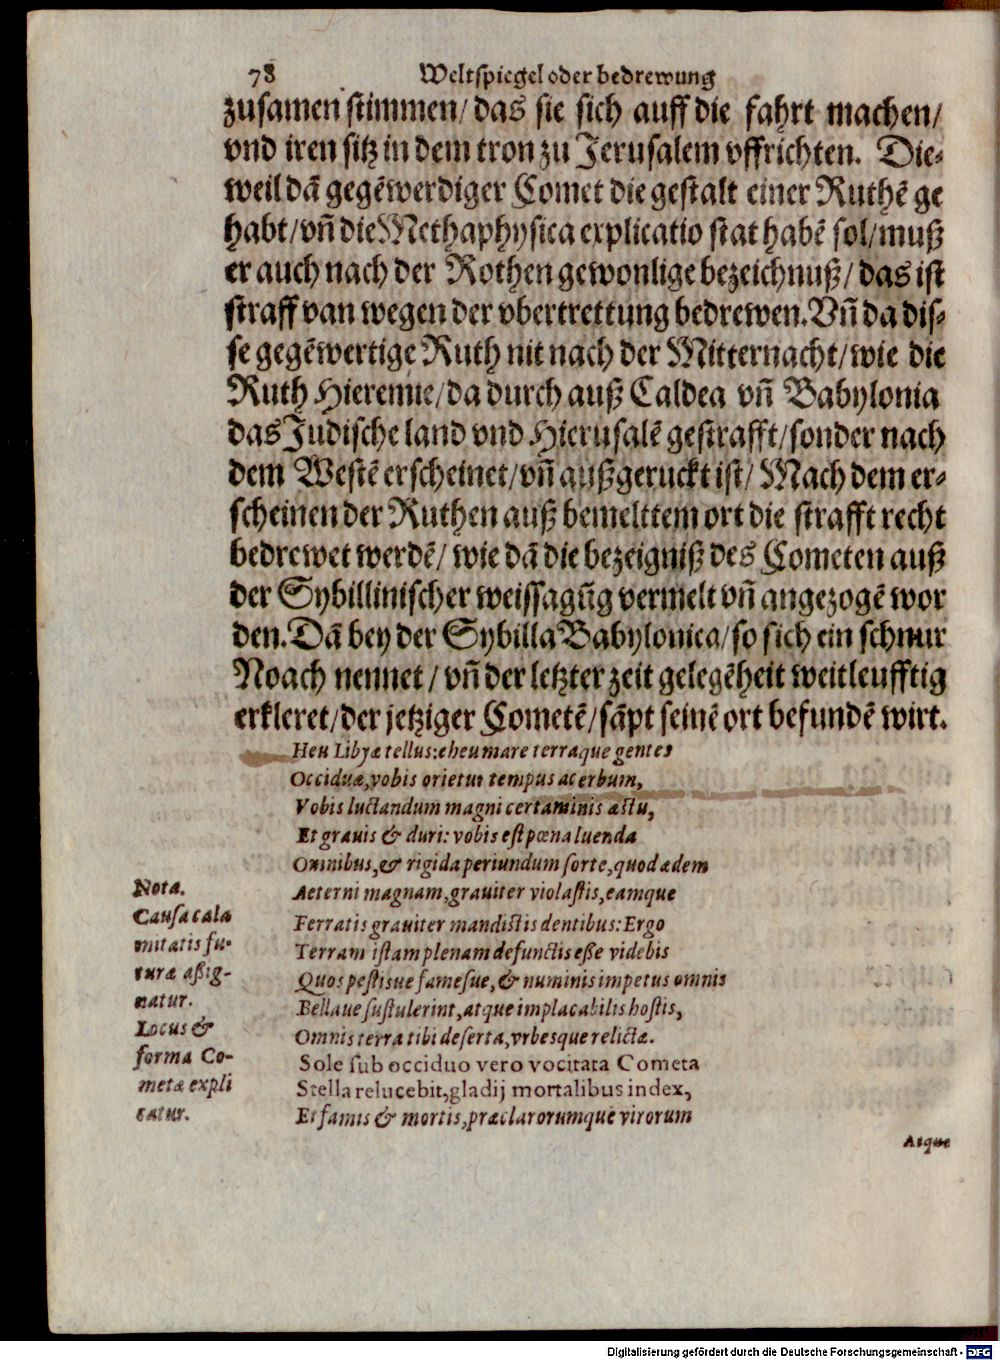 78 Weltspiegel oder bedrewung
zusamen stimmen/ das sie sich auff die fahrt machen/
vnd iren sitz in dem tron zu Jerusalem vffrichten. Die-
weil dā gegēwerdiger Comet die gestalt einer Ruthē ge
habt/ vñ die Methaphysica explicatio stat habē sol/ muß
er auch nach der Rothen gewonlige bezeichnuß/ das ist
straff van wegen der vbertrettung bedrewen. Vñ da dis-
se gegēwertige Ruth nit nach der Mitternacht/ wie die
Ruth Hieremie/ da durch auß Caldea vñ Babylonia
das Judische land vnd Hierusalē gestrafft/ sonder nach
dem Westē erscheinet/ vñ außgeruckt ist/ Mach dem er-
scheinen der Ruthen auß bemelttem ort die strafft recht
bedrewet werdē/ wie dā die bezeigniß des Cometen auß
der Sybillinischer weissagūg vermelt vñ angezogē wor
den. Dā bey der Sybilla Babylonica/ so sich ein schnur
Noach nennet/ vñ der letzter zeit gelegēheit weitleufftig
erkleret/ der jetziger Cometē/ sāpt seinē ort befundē wirt.
Heu Libyæ tellus: eheu mare terraque gentes
Occiduæ, vobis orietur tempus acerbum,
Vobis luctandum magni certaminis æstu,
Et grauis & duri: vobis est pœna luenda
Omnibus, & rigida periundum sorte, quod ædem
Nota.
Causa cala
mitatis fu-
turæ aßig-
natur.
Locus &
forma Co-
metæ expli
catur.
Aeterni magnam, grauiter violastis, eamque
Ferratis grauiter mandistis dentibus: Ergo
Terram istam plenam defunctis eße videbis
Quos pestisue famesue, & numinis impetus omnis
Bellaue sustulerint, atque implacabilis hostis,
Omnis terra tibi deserta, vrbesque relictæ.
Sole sub occiduo vero vocitata Cometa
Stella relucebit, gladij mortalibus index,
Et famis & mortis, præclarorumque virorum
Atque
Digitalisierung gefördert durch die Deutsche Forschungsgemeinschaft - DFG